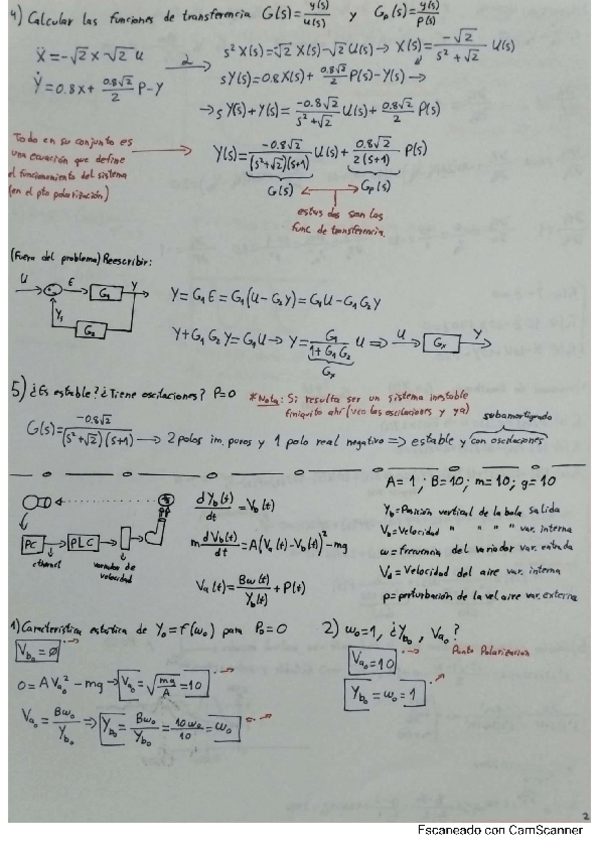 4) Calcular las funciones de transferencia G(s)=y(s)/u(s) y Gp(s)=y(s)/P(s)
Ẍ=-√2x-√2u → 𝓛 s²X(s)=√2X(s)-√2U(s) → X(s)=-√2/(s²+√2) U(s)
Ẏ=0.8x+0.8√2/2 P-Y sY(s)=0.8X(s)+0.8√2/2 P(s)-Y(s) →
→ sY(s)+Y(s)=-0.8√2/(s²+√2) U(s)+0.8√2/2 P(s)
Todo en su conjunto es
una ecuación que define
el funcionamiento del sistema
(en el pto polarización)
Y(s)=-0.8√2/((s²+√2)(s+1)) U(s)+0.8√2/(2(s+1)) P(s)
G(s) Gp(s)
estas dos son las
func de transferencia
(Fuera del problema) Reescribir:
U E G₁ Y
Y₅ G₂
Y=G₁E=G₁(U-G₂Y)=G₁U-G₁G₂Y
Y+G₁G₂Y=G₁U → Y=G₁/(1+G₁G₂) U ⇒ U → Gx → Y
Gx
5) ¿Es estable? ¿Tiene oscilaciones? P=0
*Nota: Si resulta ser un sistema inestable
finiquito ahí (veo las oscilaciones y ya)
G(s)=-0.8√2/((s²+√2)(s+1)) → 2 polos im. puros y 1 polo real negativo ⇒ estable y con oscilaciones
subamortiguado
A=1; B=10; m=10; g=10
PC PLC
ethernet
variador de
velocidad
dYb(t)/dt=Vb(t)
m dVb(t)/dt=A(Va(t)-Vb(t))²-mg
Va(t)=Bw(t)/Yb(t)+P(t)
Yb=Posición vertical de la bola salida
Vb=Velocidad " " " " var. interna
ω=frecuencia del variador var. entrada
Va=Velocidad del aire var. interna
p=perturbación de la vel. aire var. externa
1) Característica estática de Y₀=f(ω₀) para P₀=0
Vb₀=0
0=AVa₀²-mg → Va₀=√(mg/A)=10
Va₀=Bω₀/Yb₀ ⇒ Yb₀=Bω₀/Yb₀=10ω₀/10=ω₀
2) ω₀=1, ¿Yb₀, Va₀?
Punto Polarización
Va₀=10
Yb₀=ω₀=1
2
Escaneado con CamScanner